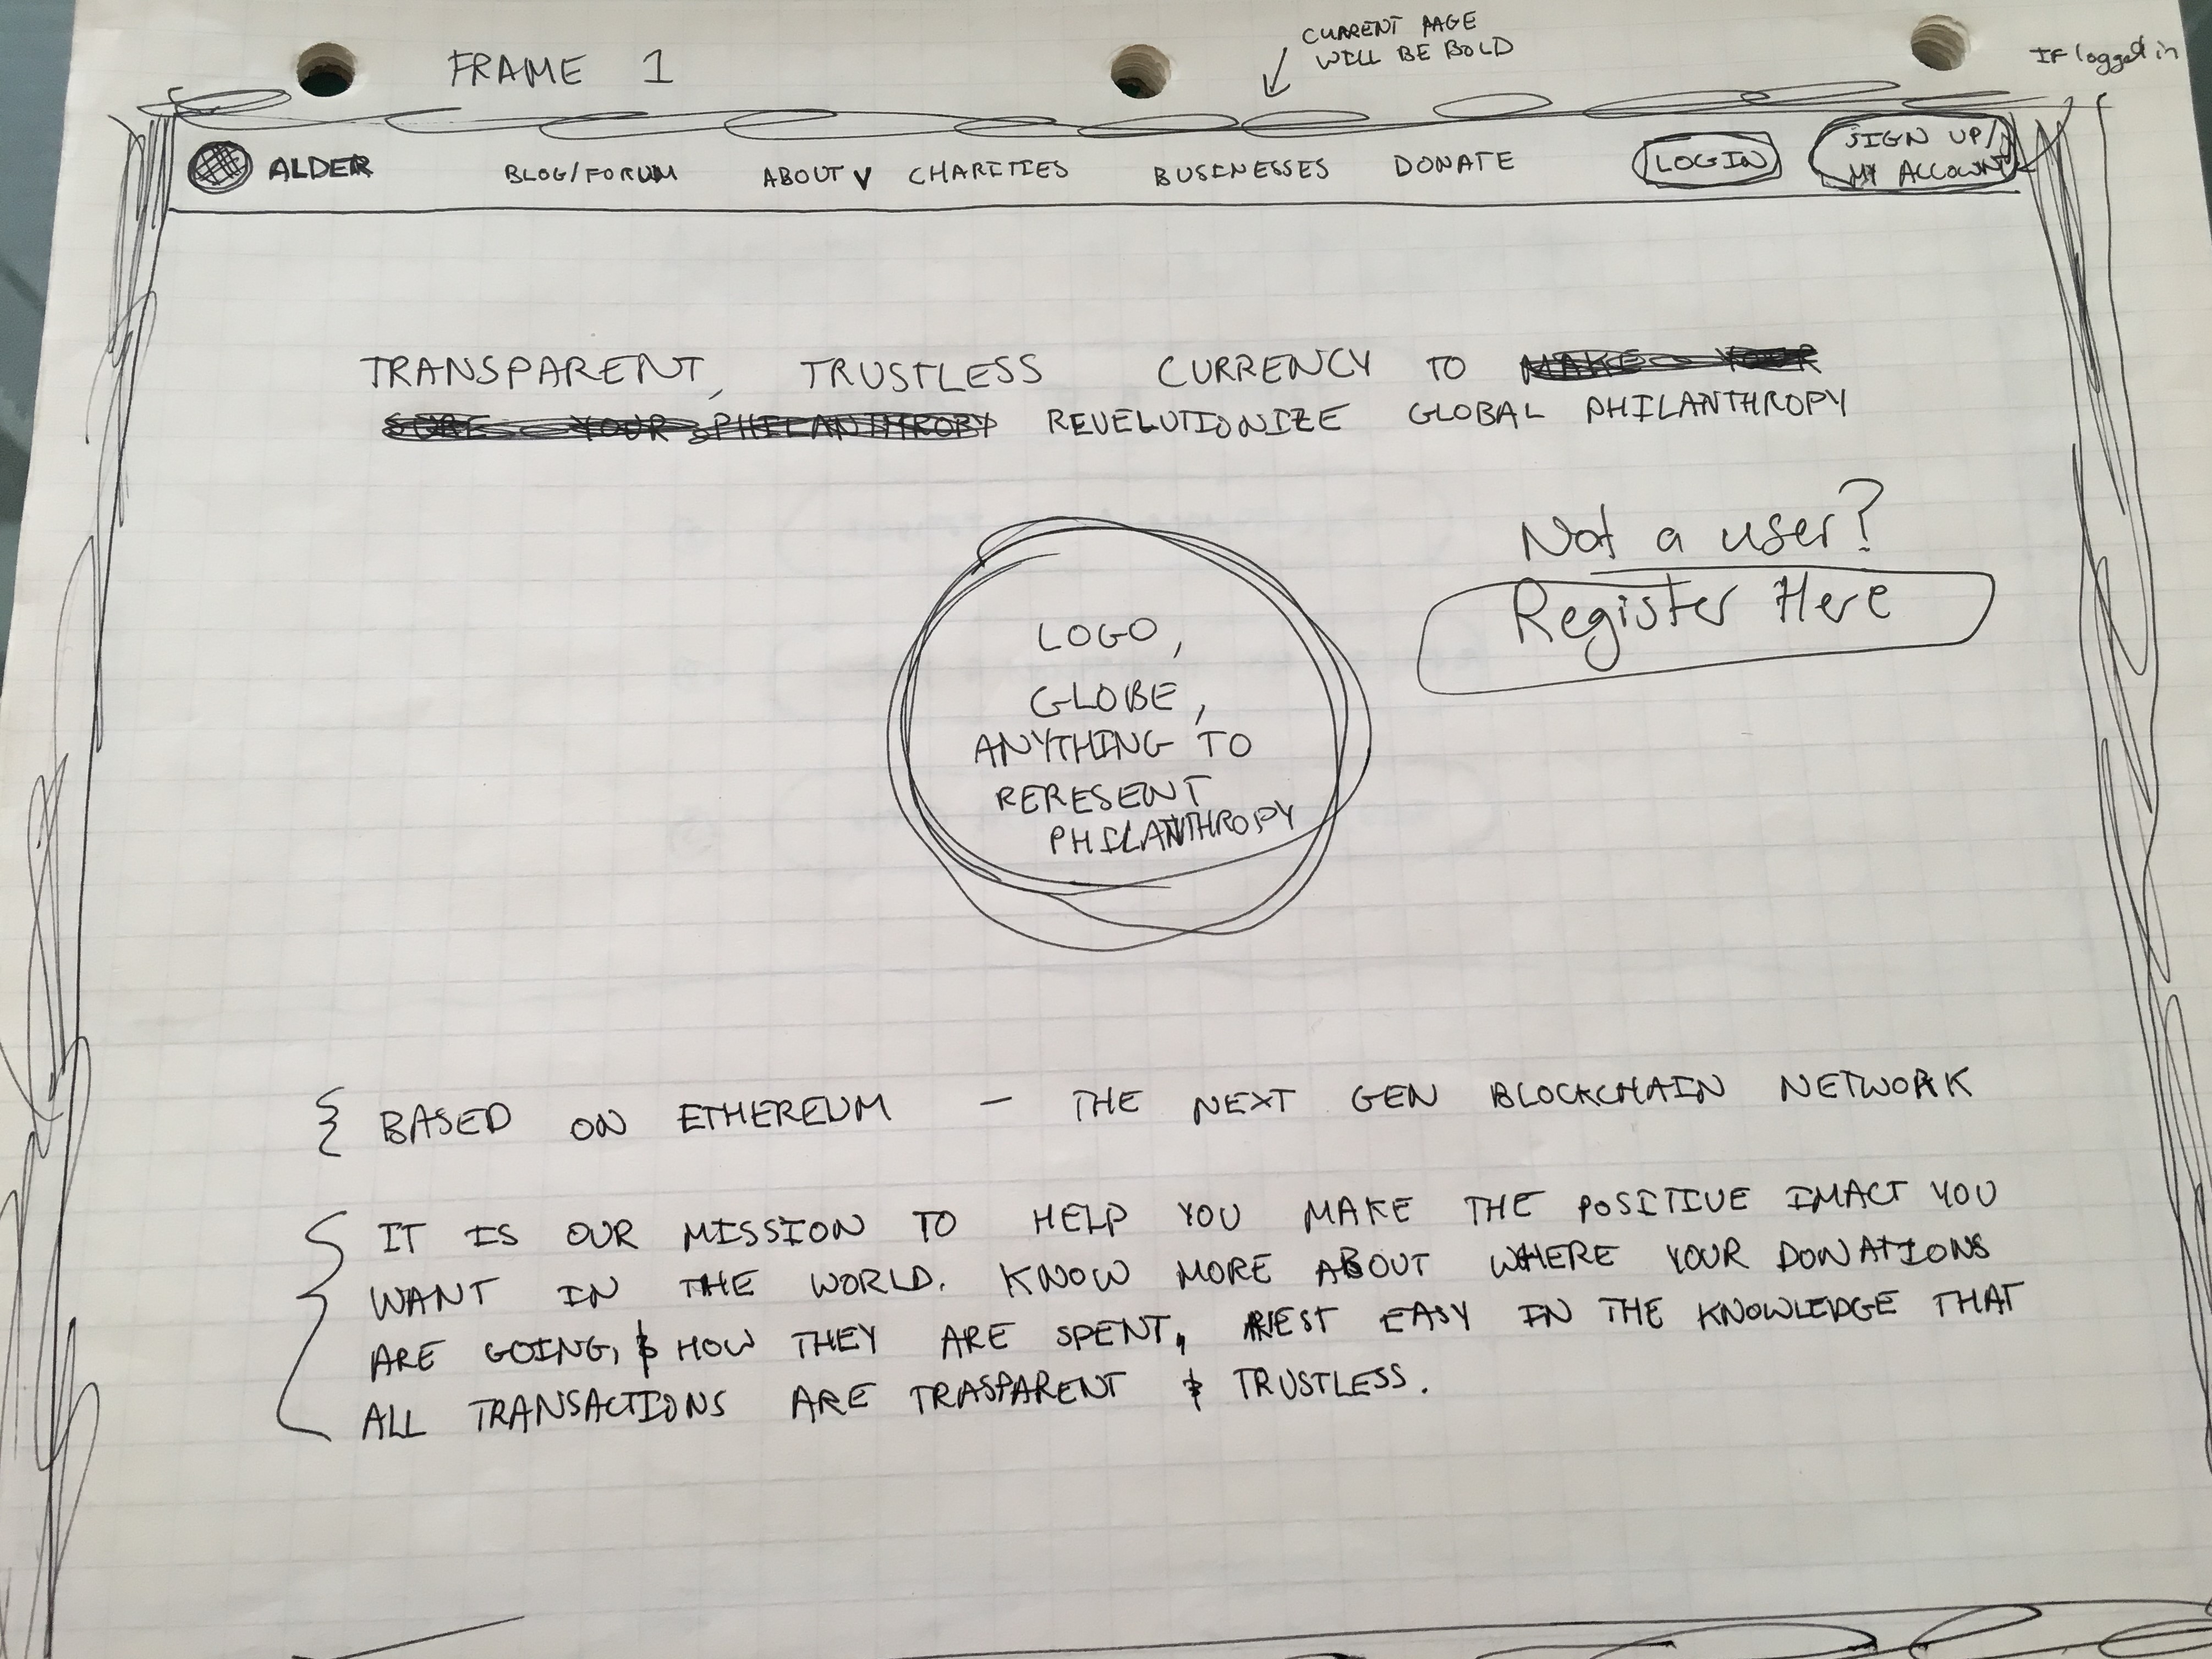 FRAME 1
CURRENT PAGE
WILL BE BOLD
IF logged in
ALDER BLOG/FORUM ABOUT V CHARITIES BUSINESSES DONATE LOGIN SIGN UP/
MY ACCOUNT
TRANSPARENT, TRUSTLESS CURRENCY TO MAKE YOUR
SURE YOUR PHILANTHROPY REVELUTIONIZE GLOBAL PHILANTHROPY
Not a user?
Register Here
LOGO,
GLOBE,
ANYTHING TO
RERESENT
PHILANTHROPY
{ BASED ON ETHEREUM — THE NEXT GEN BLOCKCHAIN NETWORK
{ IT IS OUR MISSION TO HELP YOU MAKE THE POSITIVE IMACT YOU
WANT IN THE WORLD. KNOW MORE ABOUT WHERE YOUR DONATIONS
ARE GOING, & HOW THEY ARE SPENT, REST EASY IN THE KNOWLEDGE THAT
ALL TRANSACTIONS ARE TRASPARENT & TRUSTLESS.